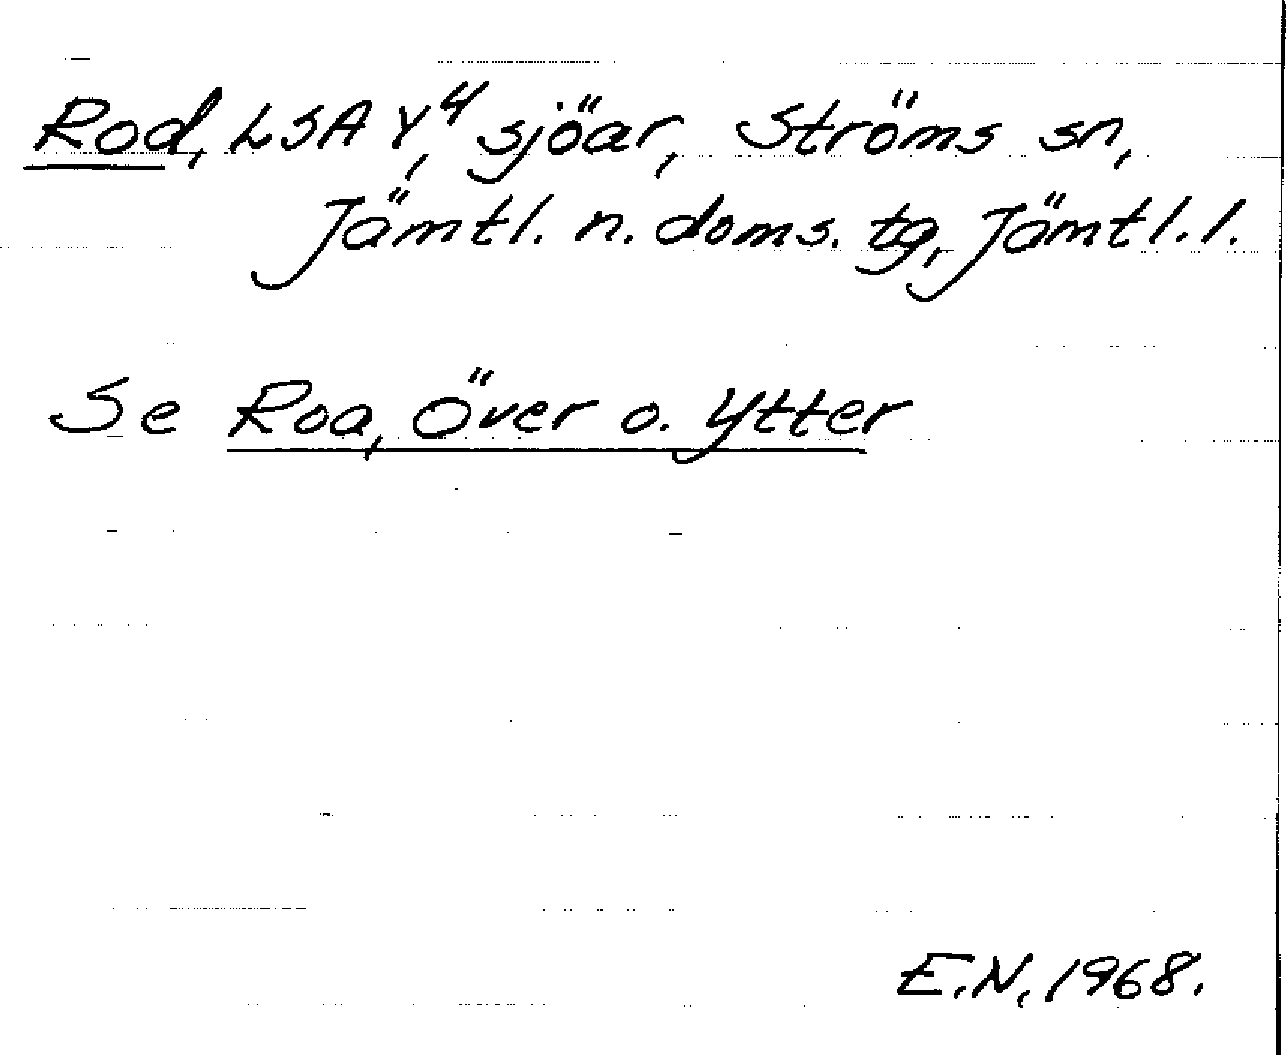 Rod, LSA Y⁴, sjöar, Ströms sn,
Jämtl. n. doms. tg, Jämtl. l.
Se Roa, Över o. Ytter
E.N, 1968.